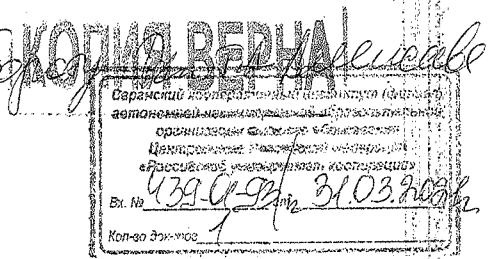 КОПИЯ ВЕРНА
Саранский кооперативный институт (филиал)
автономной некоммерческой образовательной
организации высшего образования
Центросоюза Российской Федерации
«Российский университет кооперации»
Вх. № 439-01-93 31.03.202
Кол-во док-тов 1